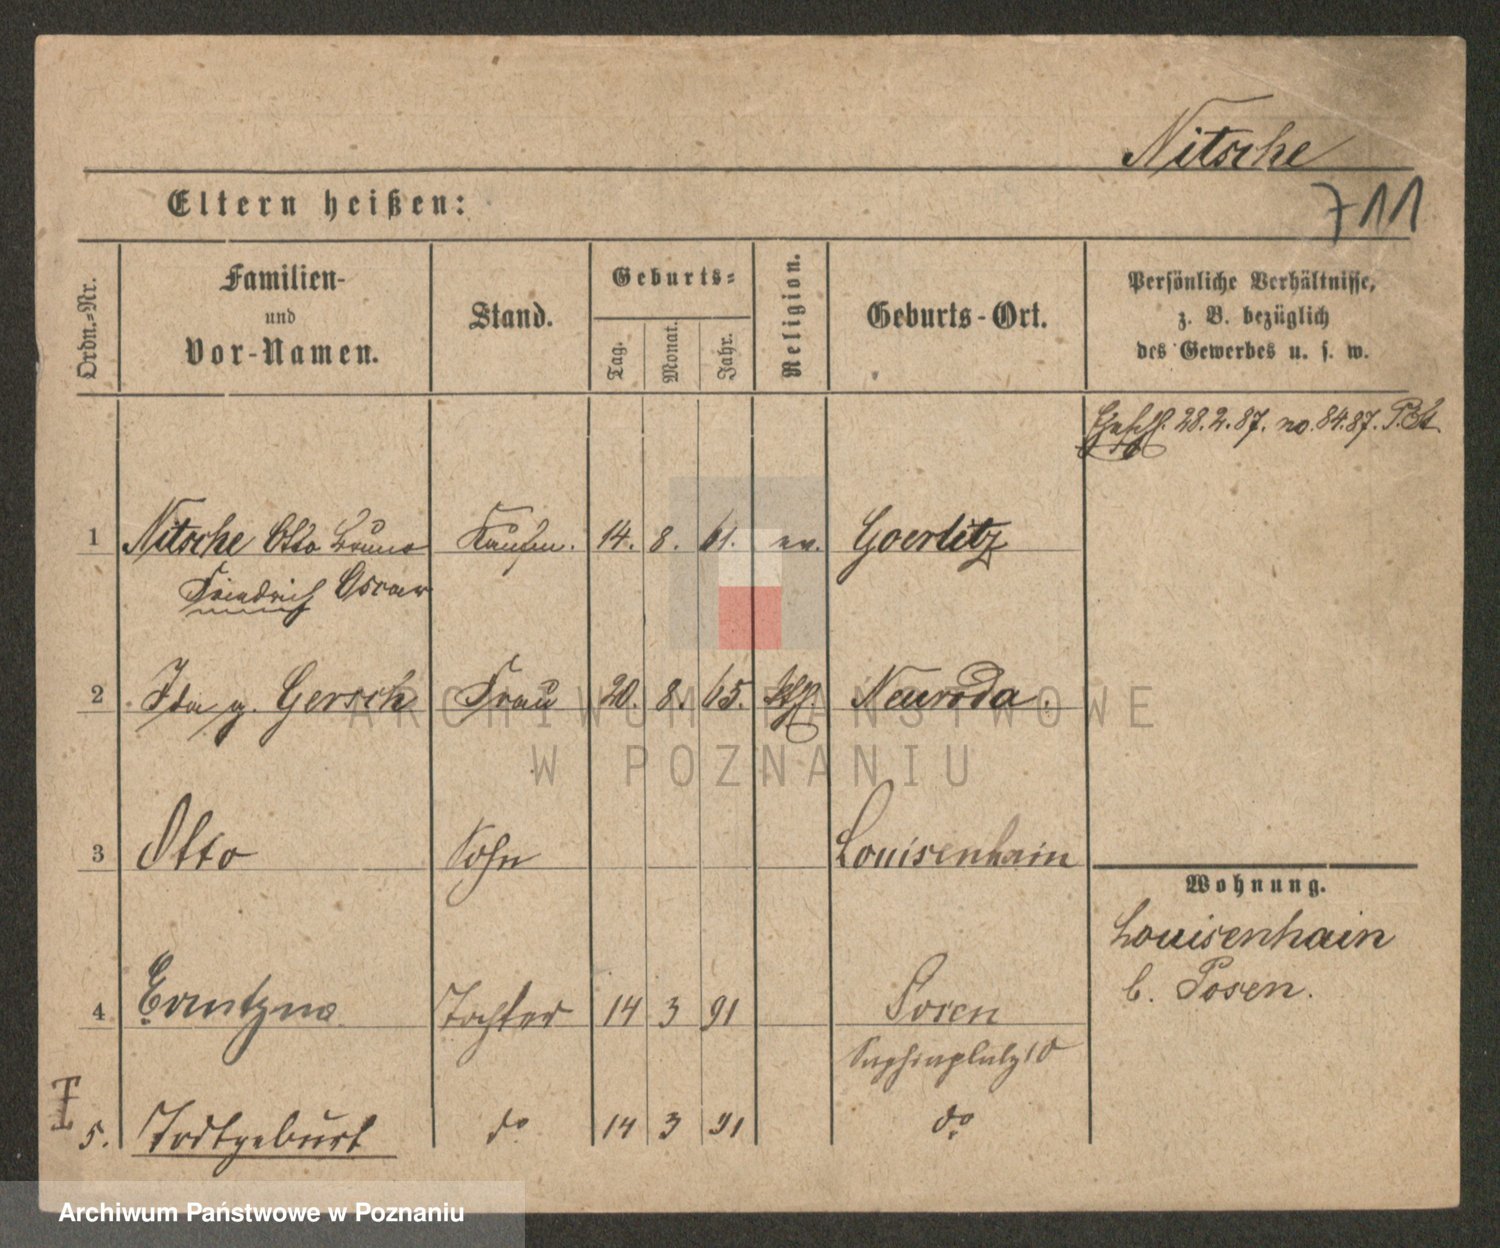 Nitsche
711
Eltern heißen:
Ordn.=Nr.
Familien-
und
Vor-Namen.
Stand.
Geburts=
Tag.
Monat.
Jahr.
Religion.
Geburts-Ort.
Persönliche Verhältnisse,
z. B. bezüglich
des Gewerbes u. s. w.
28.2.87. no. 84.87.
1 Nitsche Otto Bruno Kaufm. 14. 8. 61. ev. Goerlitz
Friedrich Oscar
2 Ida g. Gersch Frau 20. 8. 65. kth. Neuroda.
3 Otto Sohn Louisenhain
Wohnung.
Louisenhain
b. Posen.
4 Tochter 14 3 91 Posen
10
5. Todtgeburt do 14 3 91 do
ARCHIWUM PAŃSTWOWE
W POZNANIU
Archiwum Państwowe w Poznaniu